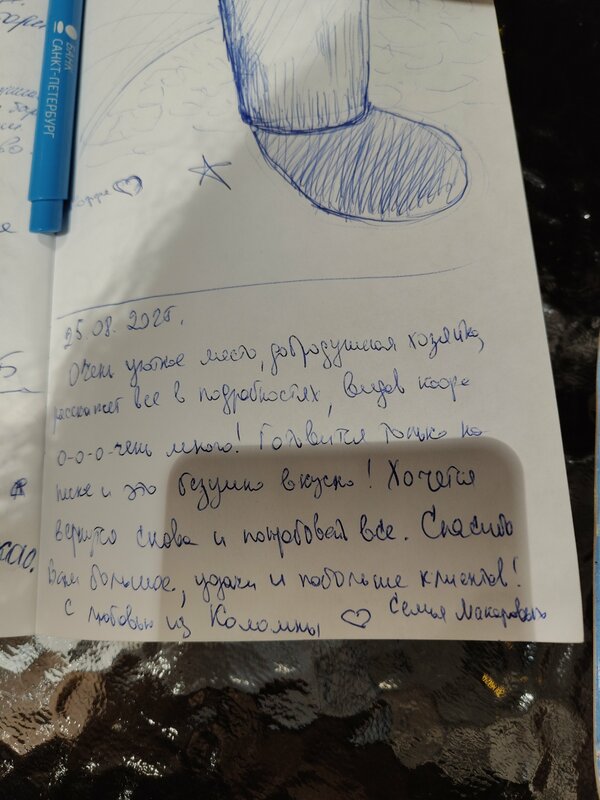 БАНК
САНКТ-ПЕТЕРБУРГ
25.08.2025г.
Очень уютное место, добродушная хозяйка,
расскажет все в подробностях, видов кофе
о-о-о-чень много! Готовится только на
песке и это безумно вкусно! Хочется
вернутся снова и попробовать все. Спасибо
Вам большое, удачи и побольше клиентов!
С любовью из Коломны ♡ Семья Макаровых